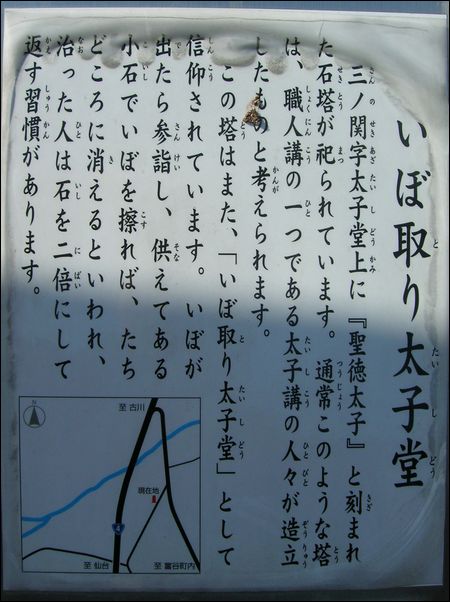 いぼ取り太子堂
三ノ関字太子堂上に『聖徳太子』と刻まれ
た石塔が祀られています。通常このような塔
は、職人講の一つである太子講の人々が造立
したものと考えられます。
この塔はまた、「いぼ取り太子堂」として
信仰されています。いぼが
出たら参詣し、供えてある
小石でいぼを擦れば、たち
どころに消えるといわれ、
治った人は石を二倍にして
返す習慣があります。
至 古川
現在地
4
至 仙台
至 富谷町内